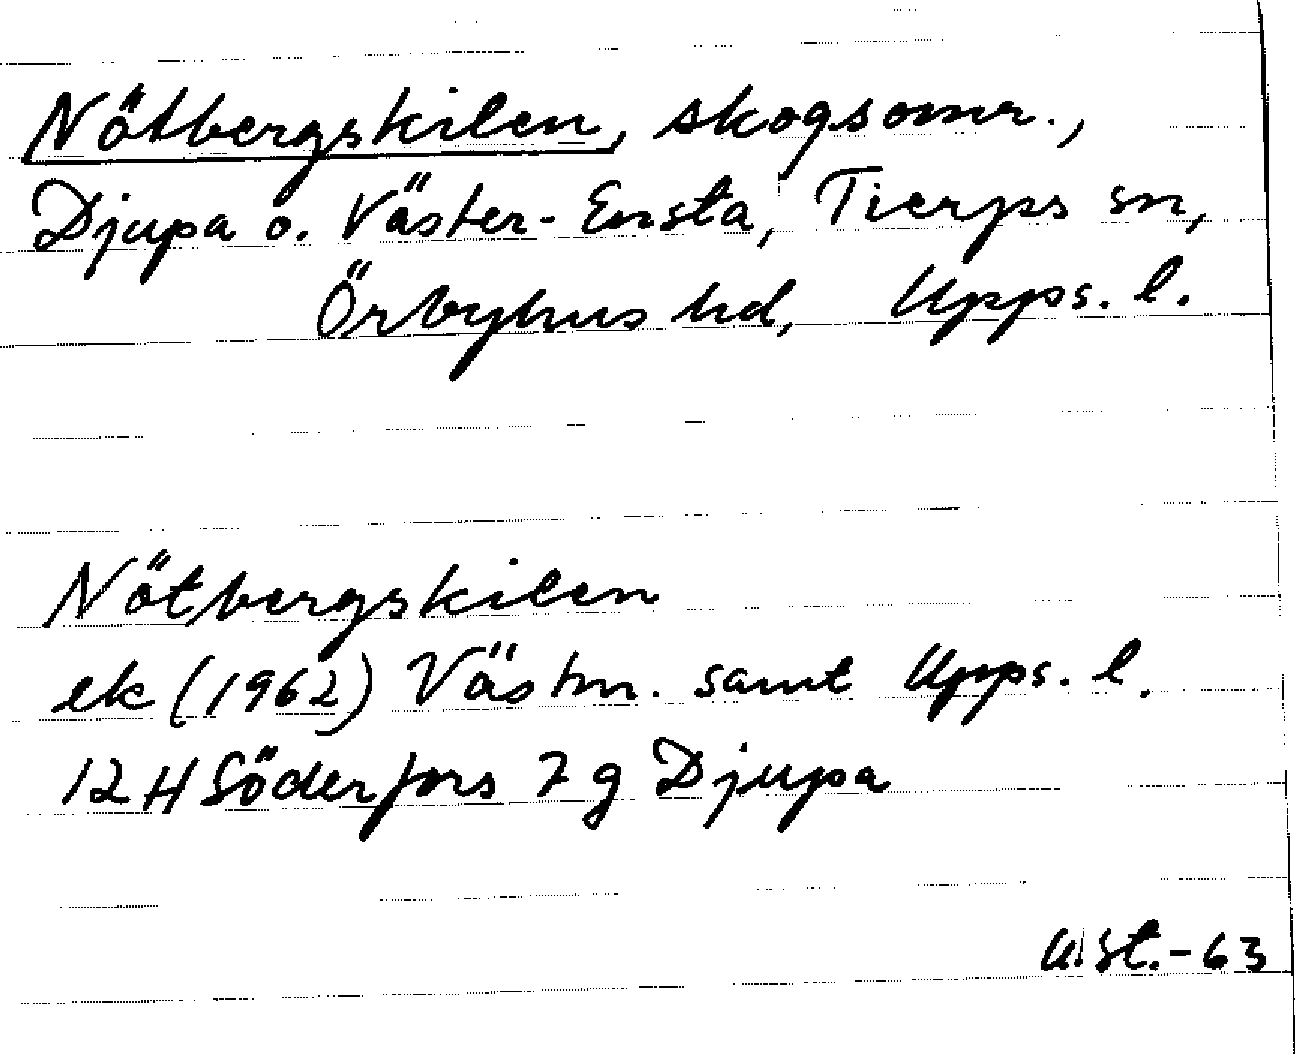 Nötbergskilen, skogsomr.,
Djupa o. Väster-Ensta, Tierps sn,
Örbyhus hd, Upps. l.
Nötbergskilen
ek (1962) Västm. samt Upps. l.
12 H Söderfors 7 g Djupa
U. St. - 63